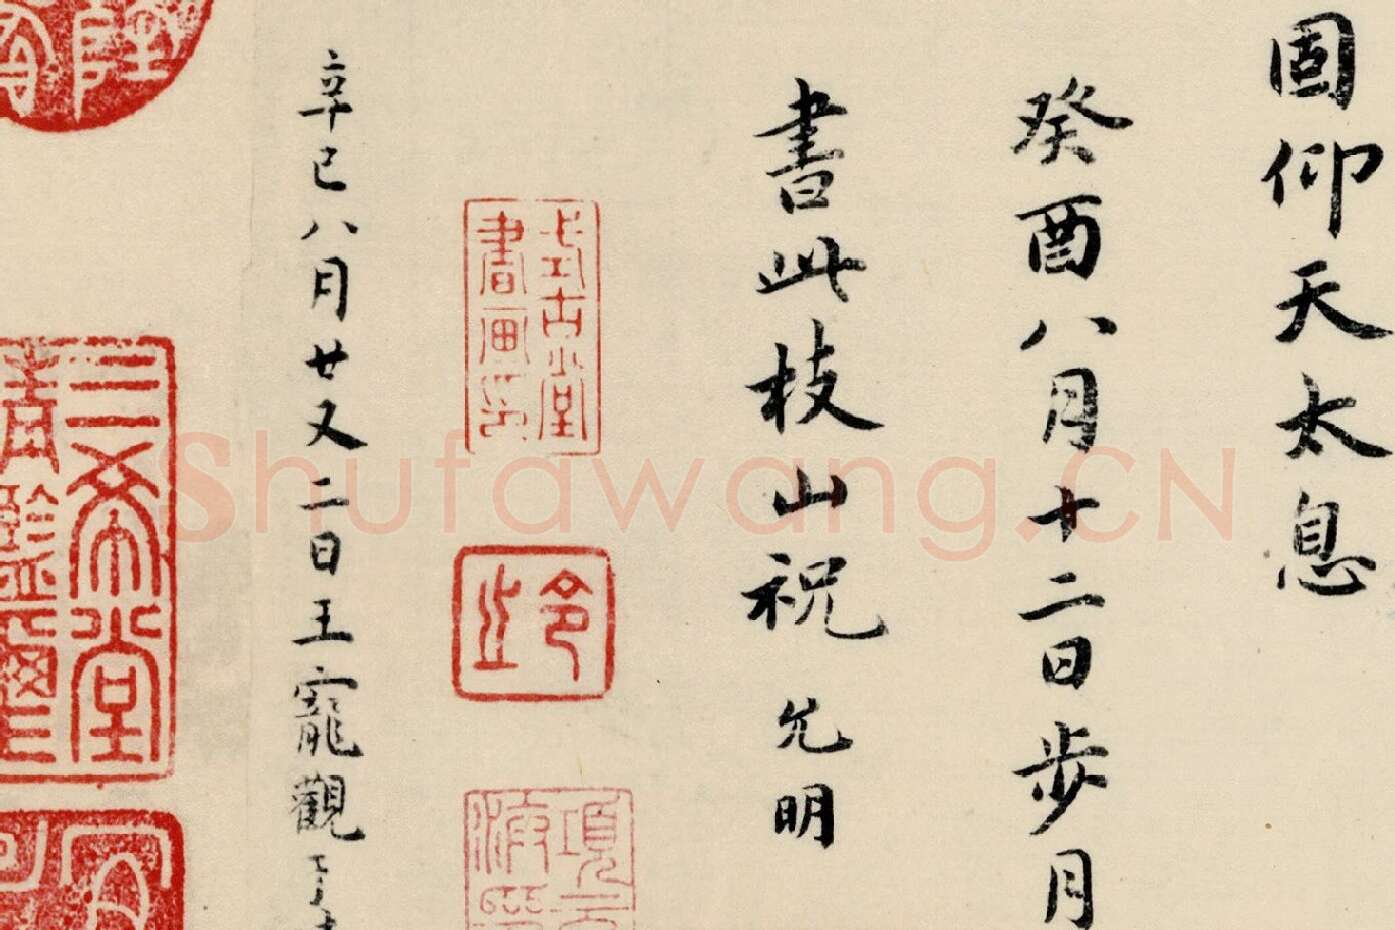 固仰天太息
癸酉八月十二日步月
書此枝山祝允明
式古堂
書畫印
辛巳八月廿又二日王寵觀于
三希堂
Shufawang.CN